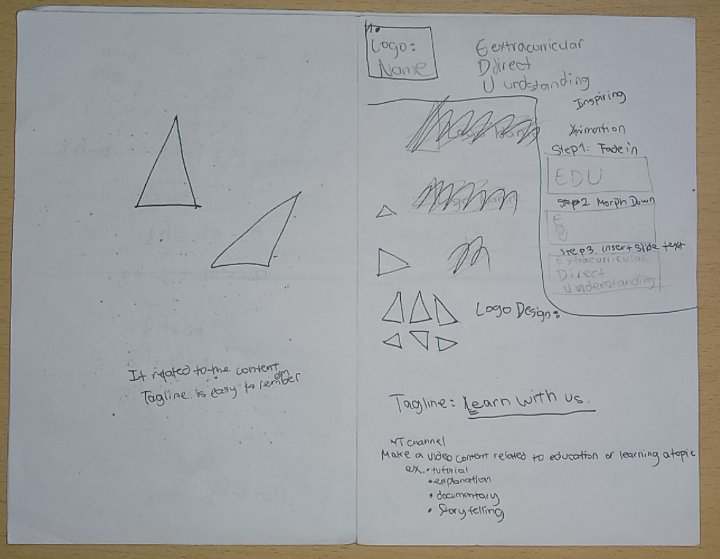 It related to the content
Tagline is easy to rember
Logo:
Name
Eextracuricular
Ddirect
U undstanding
Inspiring
Step1: Fade in
EDU
Step2 Morph Down
E
D
Step3. insert slide text
Extracuricular
Direct
Understanding
Logo Design:
Tagline: Learn with us.
YT channel
Make a video content related to education or learning a topic
ex. • tutorial
• explanation
• documentary
• Story telling